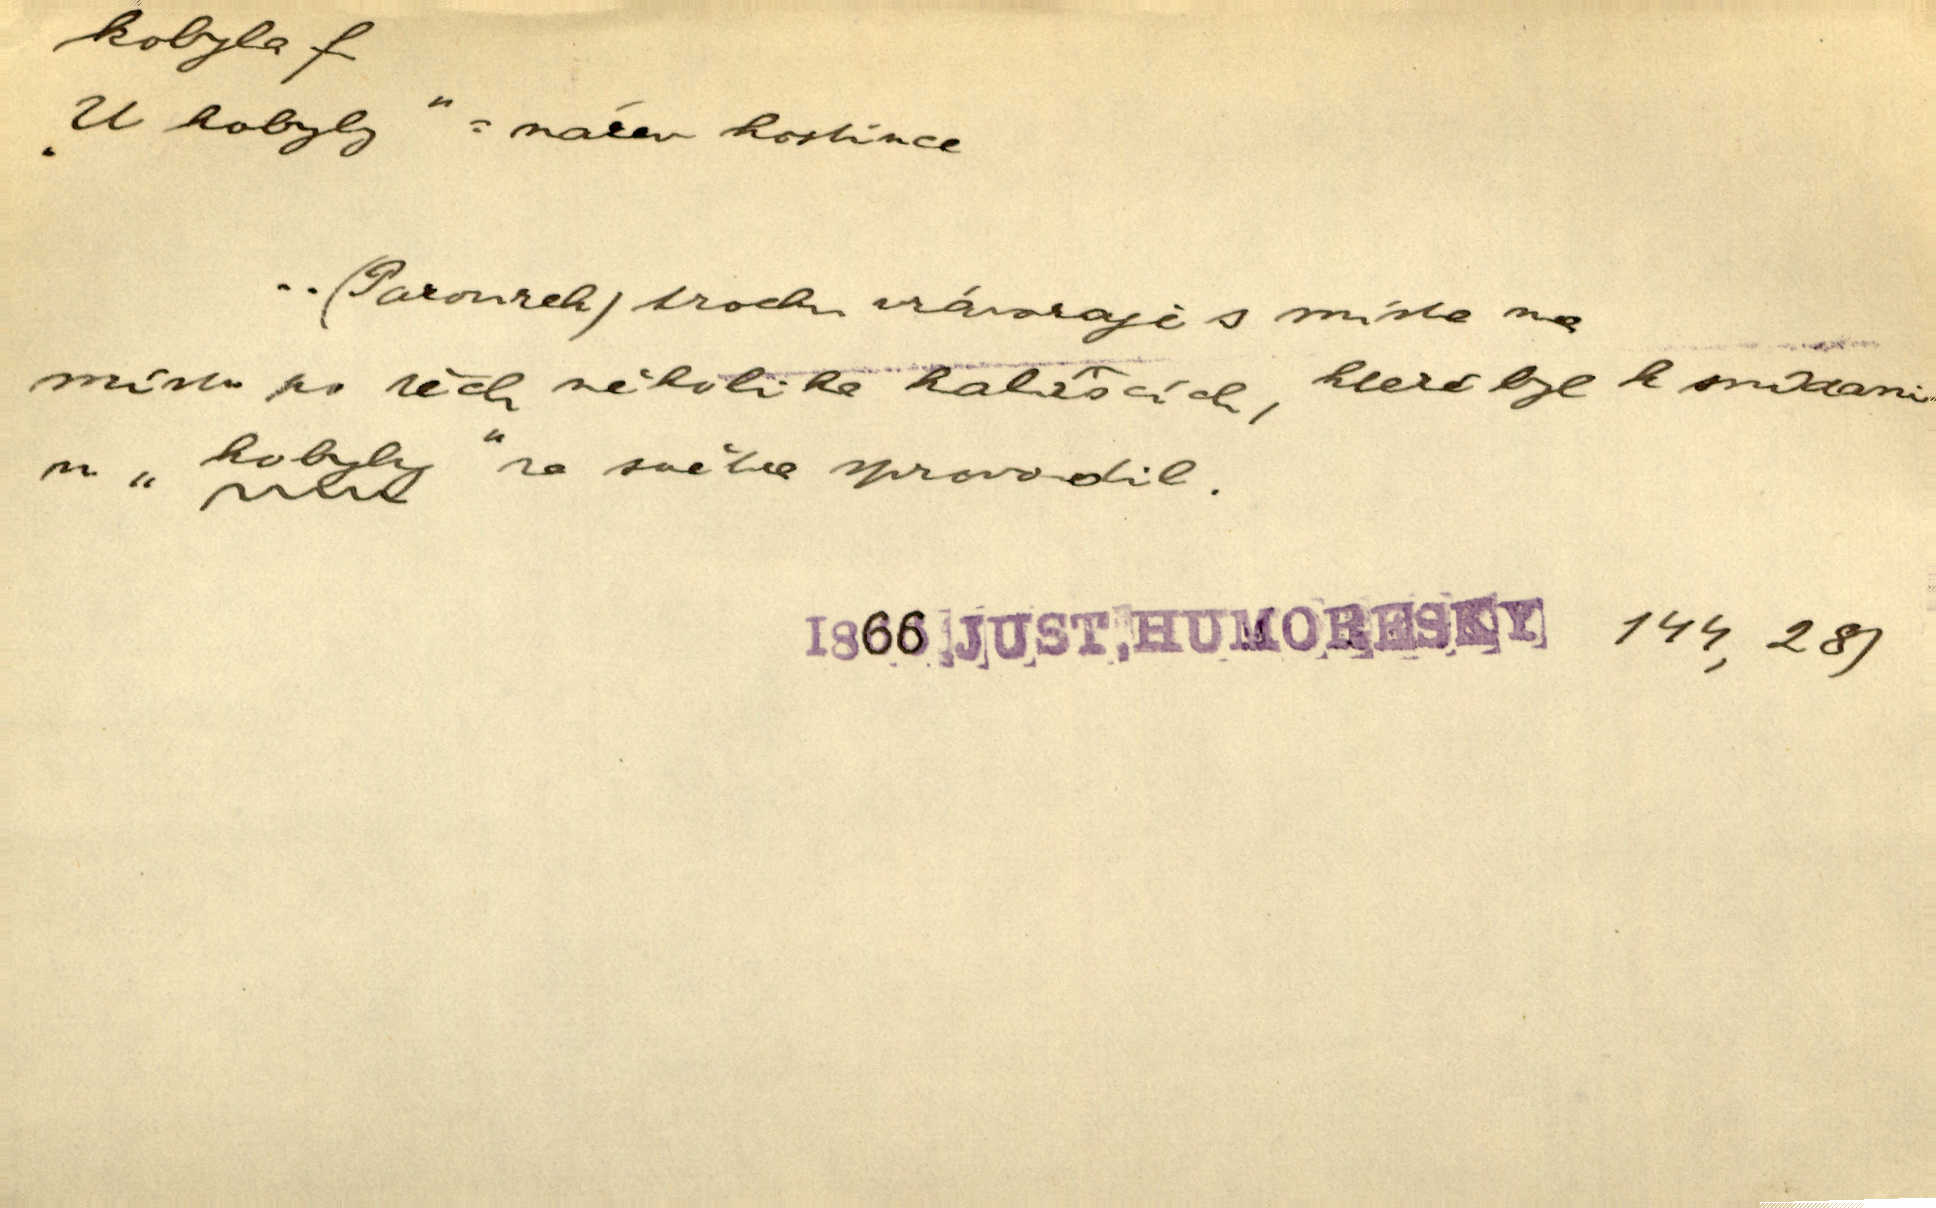 kobyla f
„U kobyly“ = název hostince
..(Parourek) trochu vrávoraje s místa na
místo po těch několika kalíšcích, které byl k snídani
u „kobyly“ se světa sprovodil.
1866, JUST, HUMORESKY 144, 28)